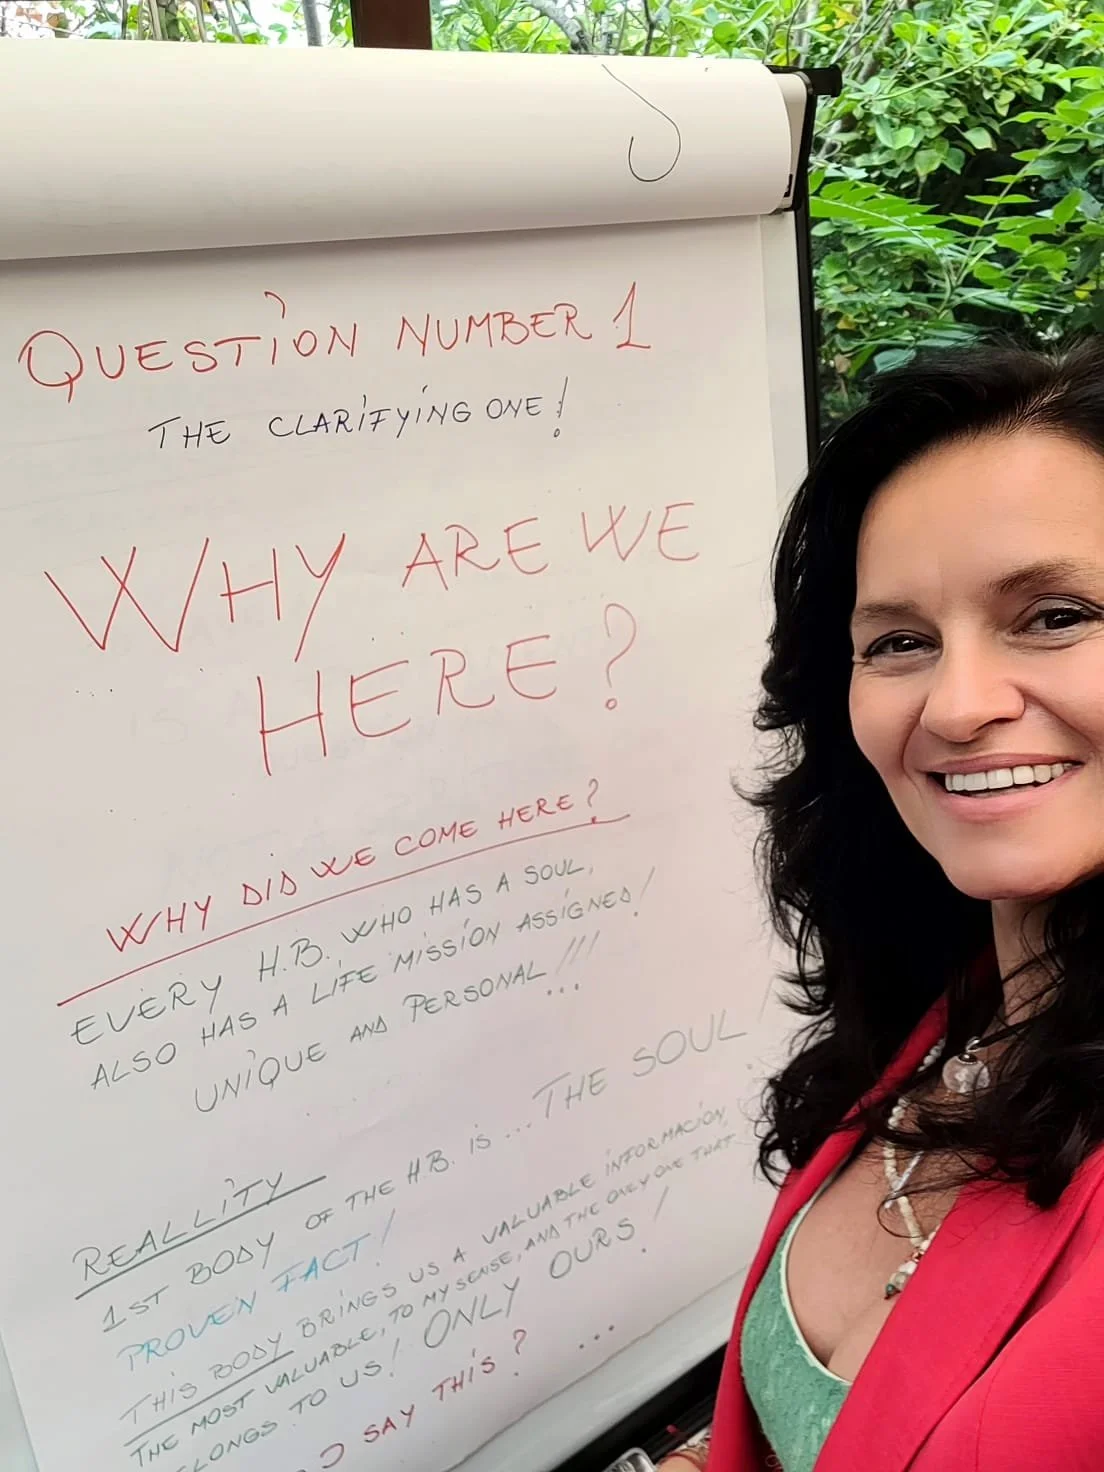 QUESTION NUMBER 1
THE CLARIFYING ONE!
WHY ARE WE
HERE?
WHY DID WE COME HERE?
EVERY H.B. WHO HAS A SOUL,
ALSO HAS A LIFE MISSION ASSIGNED!
UNIQUE AND PERSONAL!!!...
REALLITY
1ST BODY OF THE H.B. IS... THE SOUL!
PROVEN FACT!
THIS BODY BRINGS US A VALUABLE INFORMACIÓN,
THE MOST VALUABLE, TO MY SENSE, AND THE ONLY ONE THAT
TO US! ONLY OURS!
SAY THIS? ...